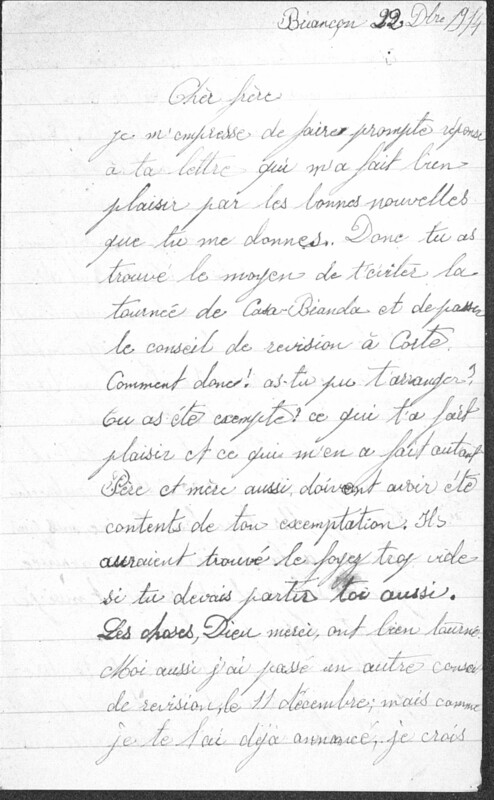 Briançon 22 Dbre 1914
Cher frère
je m'empresse de faire prompte réponse
à ta lettre qui m'a fait bien
plaisir par les bonnes nouvelles
que tu me donnes. Donc tu as
trouvé le moyen de t'eviter la
tournée de Casa-Bianda et de passer
le conseil de revision à Corte.
Comment donc! as-tu pu t'arranger?
Tu as été exempté? ce qui t'a fait
plaisir et ce qui m'en a fait autant
Père et mère aussi, doivent avoir été
contents de ton exemptation. Ils
auraient trouvé le foyer trop vide
si tu devais partir toi aussi.
Les choses, Dieu merci, ont bien tourné.
Moi aussi j'ai passé un autre conseil
de revision, le 11 décembre; mais comme
je te l'ai déjà annoncé, je crois